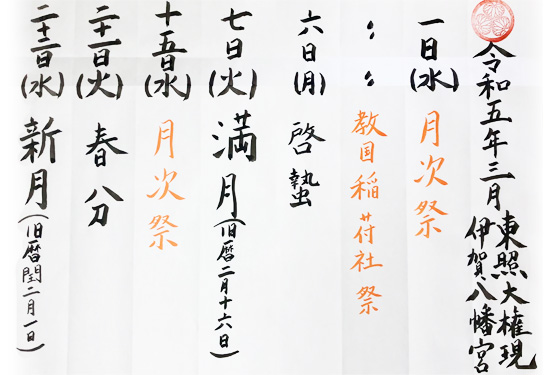 令和五年三月
東照大権現
伊賀八幡宮
一日(水) 月次祭
〃 〃 教国稲荷社祭
六日(月) 啓蟄
七日(火) 満月(旧暦二月十六日)
十五日(水) 月次祭
二十一日(火) 春分
二十二日(水) 新月(旧暦閏二月一日)